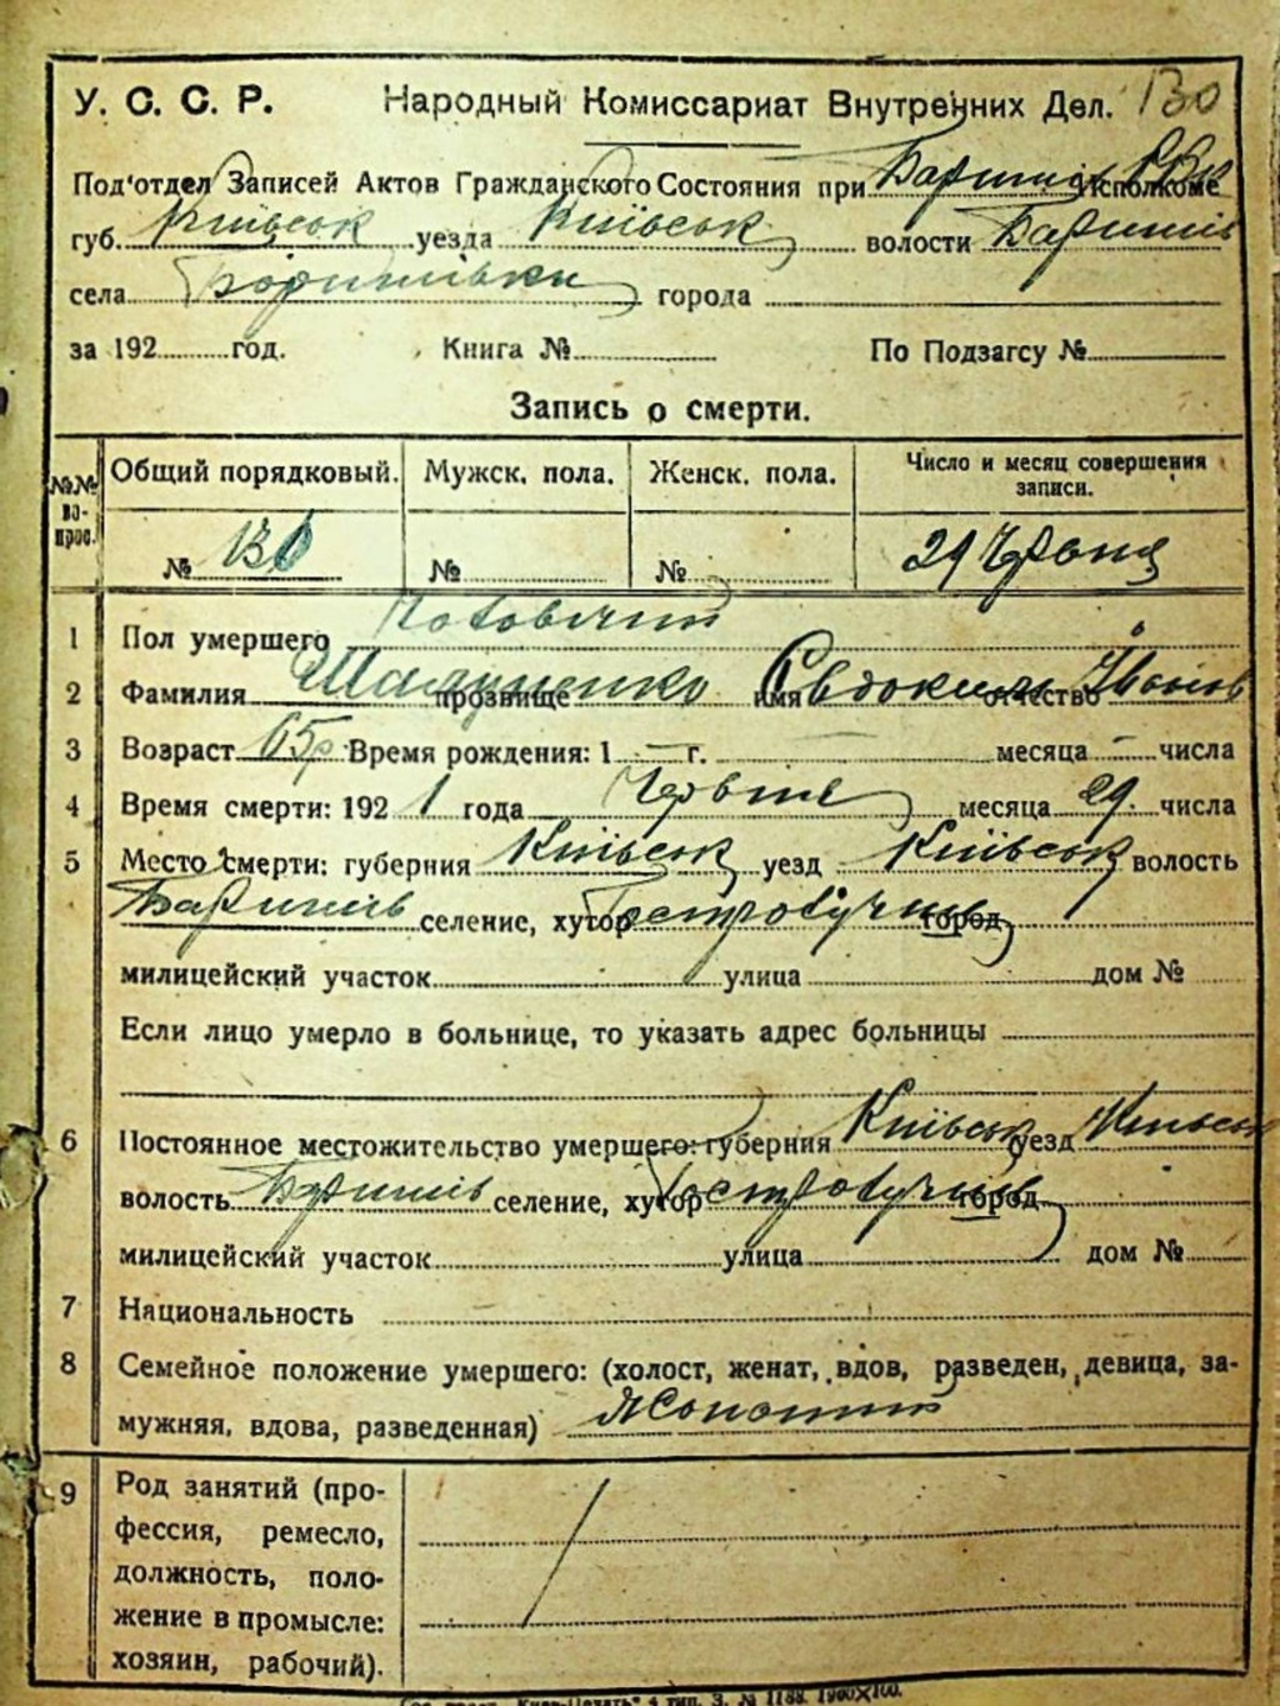 У. С. С. Р. Народный Комиссариат Внутренних Дел. 130
Под'отдел Записей Актов Гражданского Состояния при Исполкоме
губ. Київськ уезда Київськ волости Баришів
села города
за 192 год. Книга № По Подзагсу №
Запись о смерти.
№№ во-прос. Общий порядковый. Мужск. пола. Женск. пола. Число и месяц совершения записи.
№ 130 № № 29 Червня
1 Пол умершего Чоловічий
2 Фамилия прозвище имя Євдоким отчество Іванов
3 Возраст 65 р Время рождения: 1 — г. — месяца — числа
4 Время смерти: 192 1 года Червня месяца 29. числа
5 Место смерти: губерния Київськ уезд Київськ волость
Баришів селение, хутор город
милицейский участок улица дом №
Если лицо умерло в больнице, то указать адрес больницы
6 Постоянное местожительство умершего: губерния Київськ уезд Київськ
волость Баришів селение, хутор город
милицейский участок улица дом №
7 Национальность
8 Семейное положение умершего: (холост, женат, вдов, разведен, девица, за-
мужняя, вдова, разведенная) Жонатий
9 Род занятий (про-
фессия, ремесло,
должность, поло-
жение в промысле:
хозяин, рабочий).